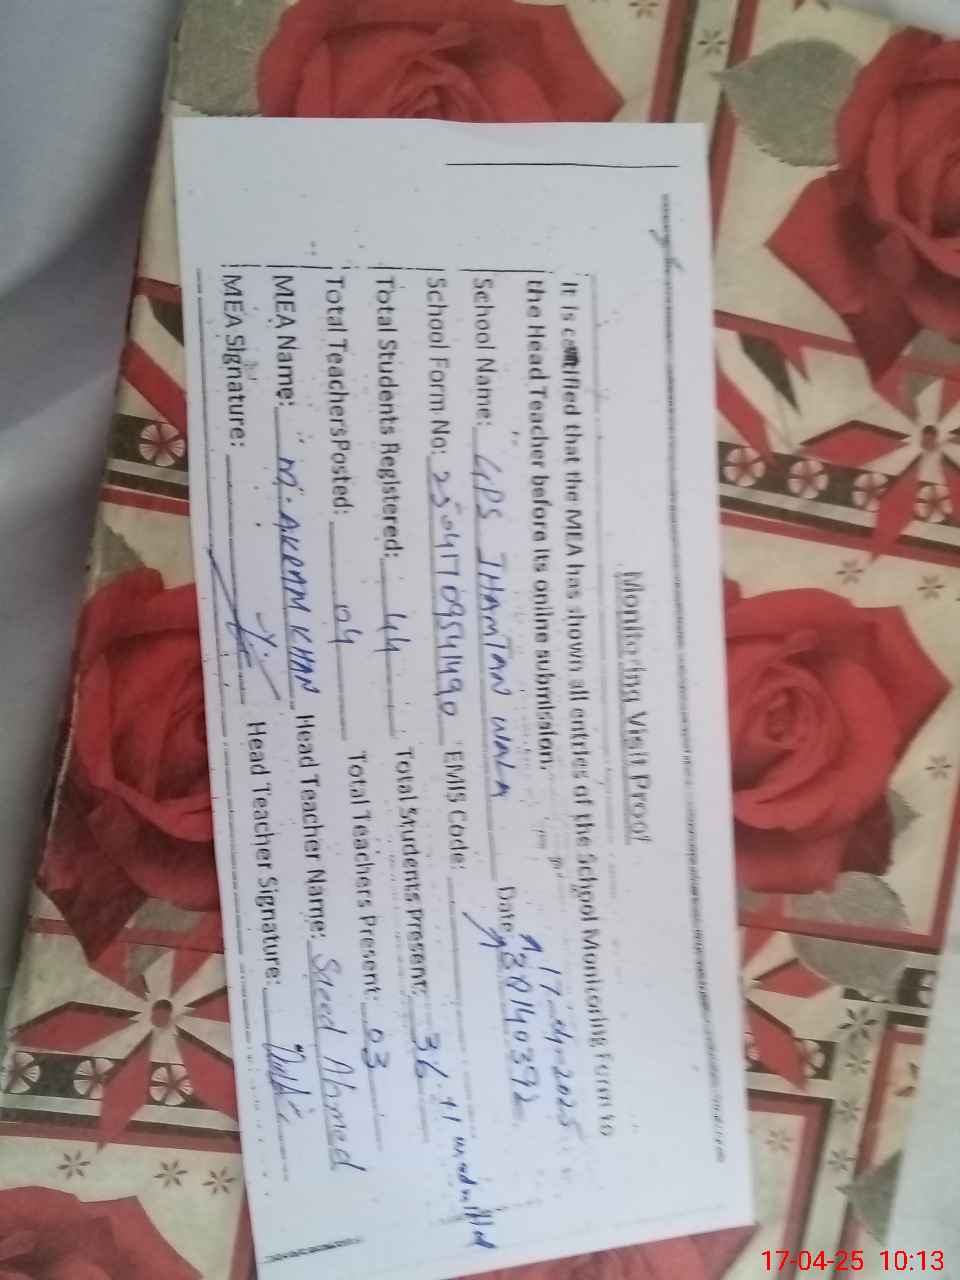 Monitoring Visit Proof
It is certified that the MEA has shown all entries of the School Monitoring Form to
the Head Teacher before its online submission.
School Name: GPS JHAMTAN WALA Date 17-04-2025
School Form No: 25041709541490 EMIS Code: 38140392
Total Students Registered: 44 Total Students Present: 36 + 1 unadmitted
Total Teachers Posted: 04 Total Teachers Present: 03
MEA Name: M. AKRAM KHAN Head Teacher Name: Saeed Ahmed
MEA Signature: Head Teacher Signature:
17-04-25 10:13